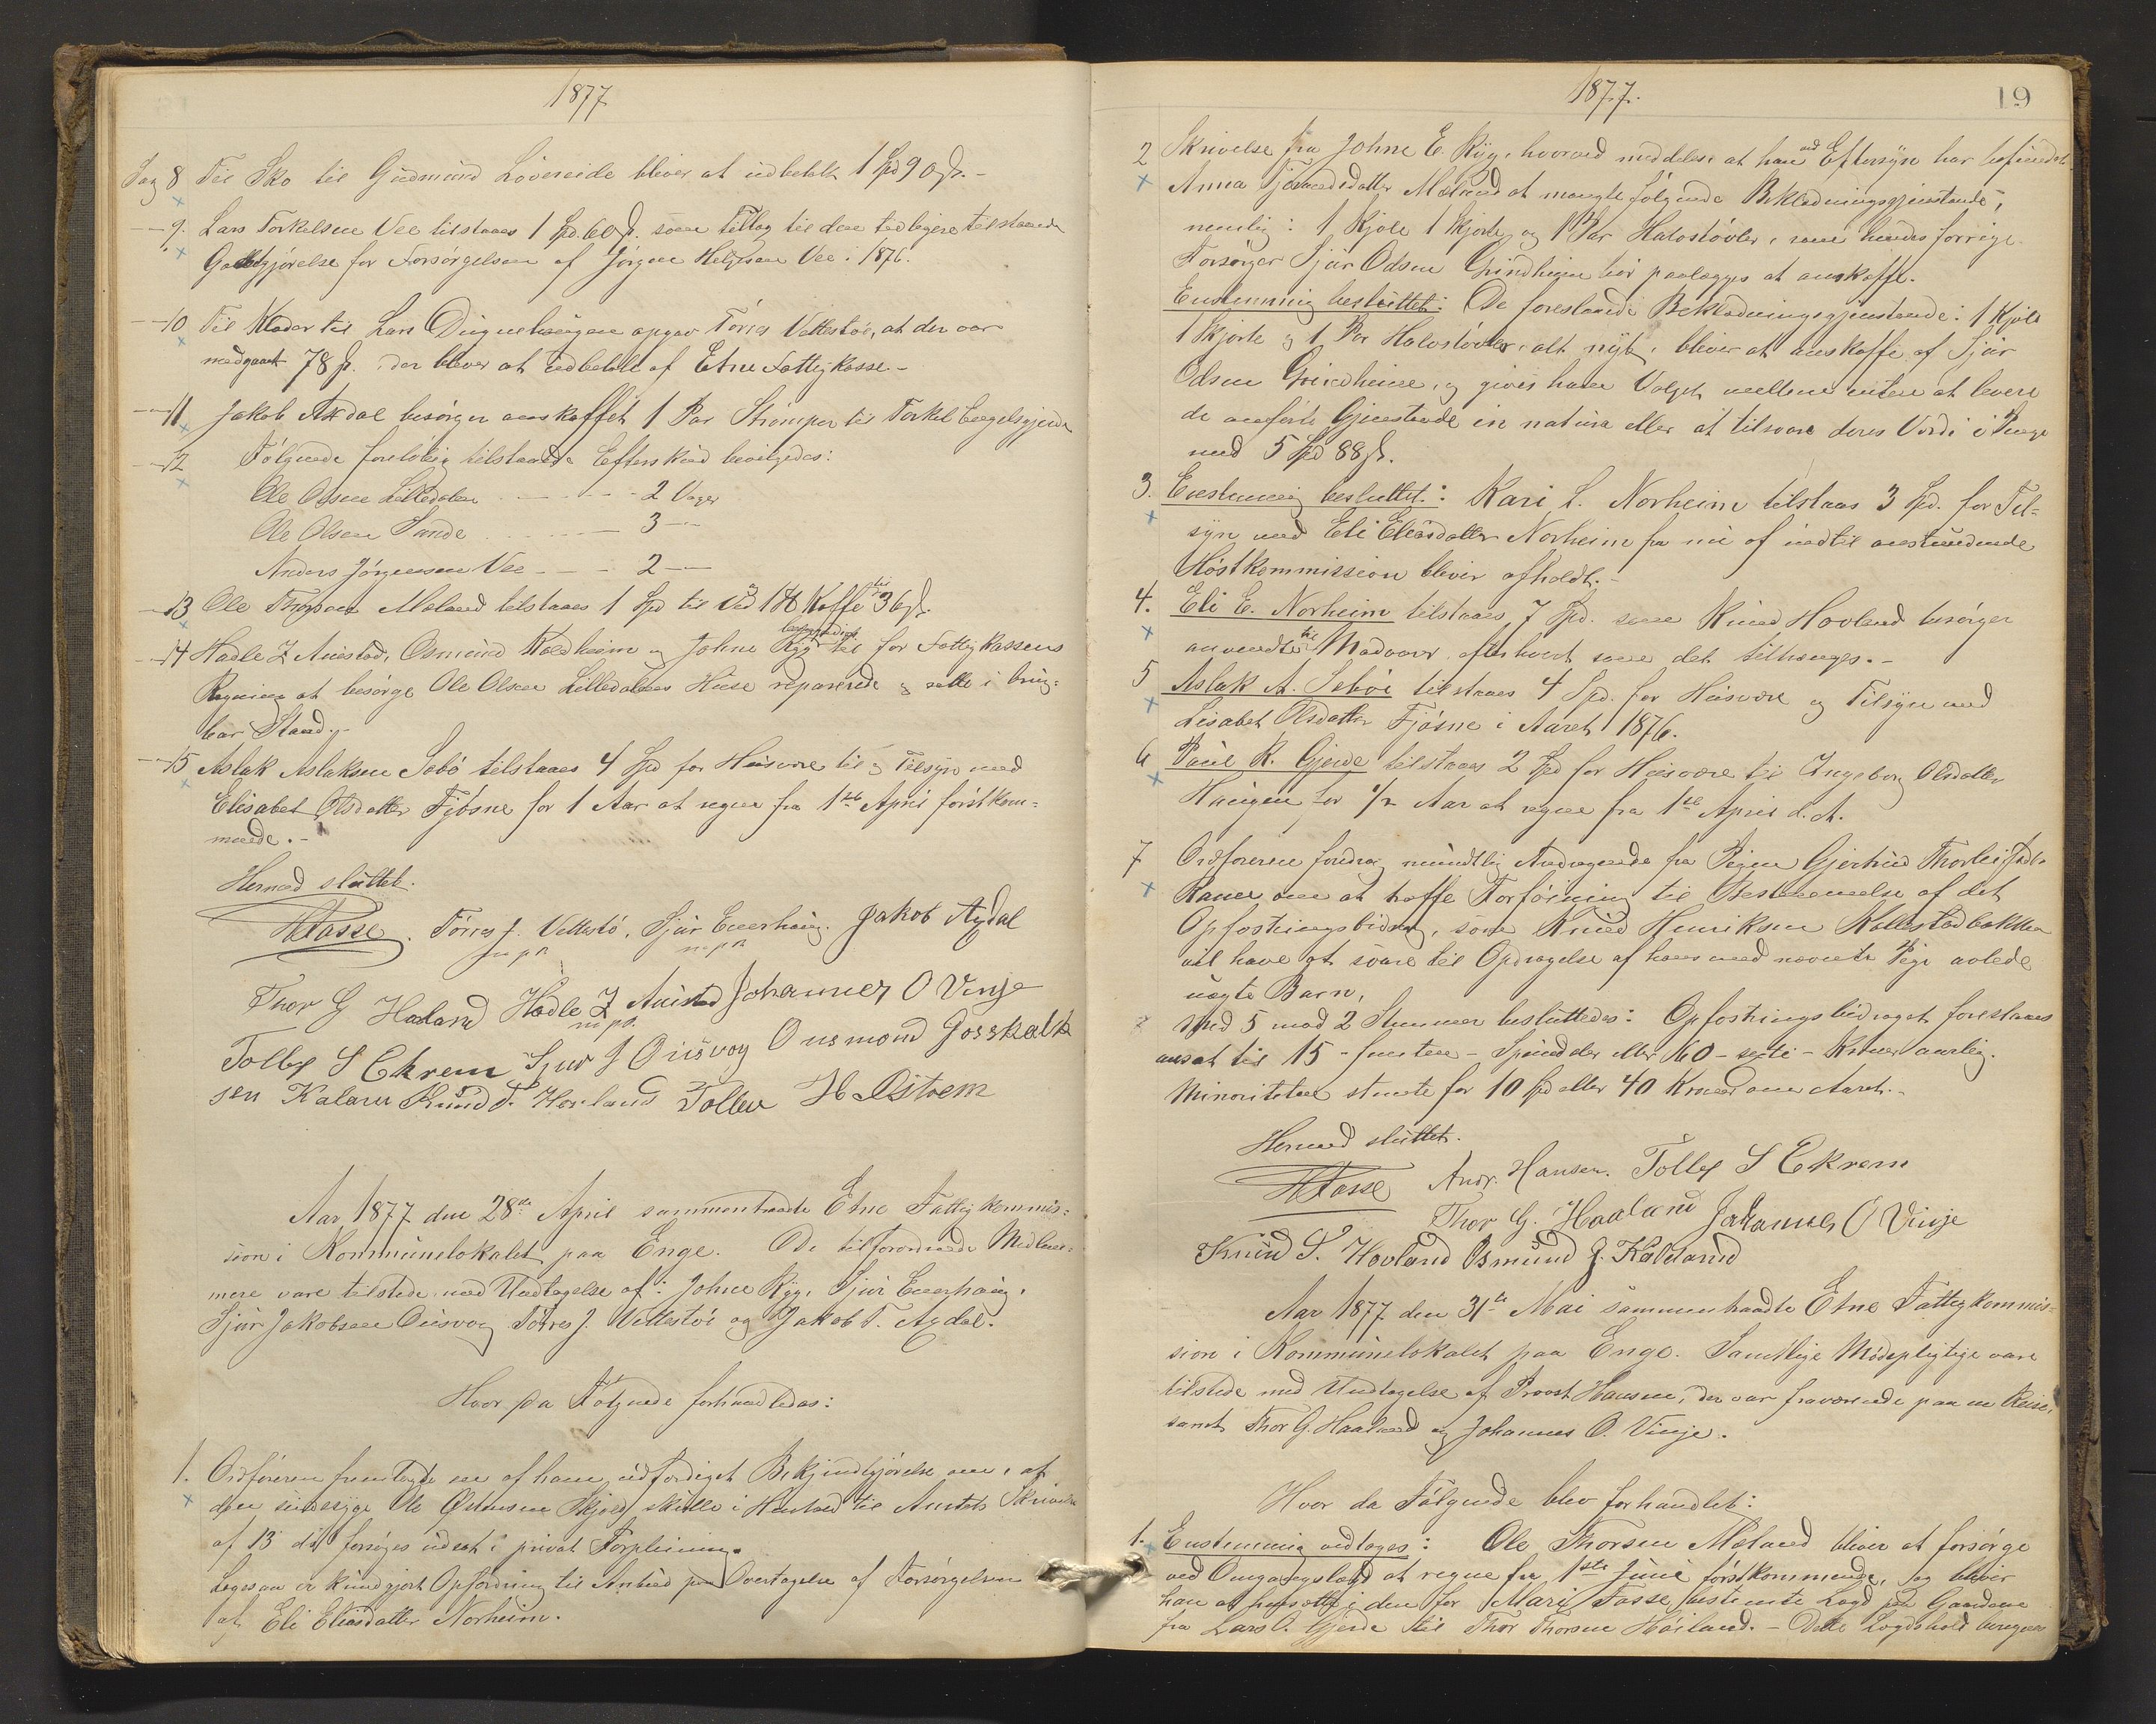 1877
Sag 8 Til Sko til Gudmund Lövereide bliver at udbetale 1 Spd 90 ß. -
- 9. Lars Torkelsen Vee tilstaaes 1 Spd. 60 ß. som Tillæg til den tidligere tilstaaede
Godtgjörelse for Forsörgelsen af Jörgen Helgesen Vee i 1876.
- 10 Til Klæder til Lars opgav Törres Vettestöe, at der var
medgaaet 78 ß. der bliver at udbetale af Etne Fattigkasse -
- 11 Jakob Axdal besörger anskaffet 1 Par Strömper til Torkel
- 12 Fölgende forelöbig tilstaaede bevilgedes:
Ole Olsen Lilledalen - - - 2 Voger
Ole Olsen Sande - - - 3 -
Anders Jörgensen Vee - - - 2 -
- 13 Ole Thorsen Mæland tilstaaes 1 Spd til Ved 1 ℔ Kaffe til 36 ß.
- 14 Hadle Z Austad, Osmund Kaldheim og Johne Ryg bemyndiges til for Fattigkassens
Regning at besörge Ole Olsen Lilledalens Huse reparerede og satte i brug-
bar Stand. -
- 15 Aslak Aslaksen Sebö tilstaaes 4 Spd for Husvære til og Tilsyn med
Elisabet Olsdatter Fjösne for 1 Aar at regne fra 1ste April förstkom-
mende. -
Hermed sluttet.
HTasse. Törres J. Vettestö. Sjur Enerhaug. Jakob Axdal
m p P. m p P
Thor G Haaland Hadle Z Austad Johannes O Vinje
m p P.
Tollef S Ekrem Sjur J Ousvog Ousmond Gosskalk
sen Kalann Knud T. Hovland Tollev H Östrem
Aar 1877 den 28de April sammentraadte Etne Fattigkommis-
sion i Kommunelokalet paa Enge. De tilforordnede Medlem-
mere vare tilstede med Undtagelse af: Johne Ryg, Sjur Enerhaug,
Sjur Jakobsen Ousvog Törres J. Vettestöe og Jakob T. Axdal.
Hvor da Fölgende forhandledes:
1. Ordföreren fremlagde en af ham udfærdiget Bekjendtgjörelse om, at
den sindssyge Ole Östensen Skjold skulle i Henhold til Amtets Skrivelse
af 13 ds. forsöges udsat i privat Forpleining.
Ligesaa er kundgjort Opfordring til Anbud paa Overtagelse af Forsörgelsen
af Eli Eliasdatter Norheim.
1877.
19
2 Skrivelse fra Johne E. Ryg, hvorved meddeles at han ved Eftersyn har befundet
Anna Mæland at mangle fölgende Beklædningsgjenstande,
nemlig: 1 Kjole 1 Skjorte og 1 Par Halvstövler, som hendes forrige
Forsörger Sjur Odsen Grindheim bör paalægges at anskaffe.
Enstemmig besluttet: De foreslaaede Beklædningsgjenstande: 1 Kjole
1 Skjorte og 1 Par Halvstövler, alt nyt, bliver at anskaffe af Sjur
Odsen Grindheim, og gives ham Valget mellem enten at levere
de anförte Gjenstande in natura eller at tilsvare deres Værdi i Penge
med 5 Spd 88 ß.
3. Enstemmig besluttet: Kari L. Norheim tilstaaes 3 Spd. for Til-
syn med Eli Eliasdatter Norheim fra nu af indtil anstundende
Höstkommission bliver afholdt. -
4. Eli E. Norheim tilstaaes 7 Spd. som Knud Hovland besörger
anvendte til Madvarer, efterhvert som det tiltrænges. -
5 Aslak A. Seböe tilstaaes 4 Spd. for Husvære og Tilsyn med
Lisabet Olsdatter Fjösne i Aaret 1876.
6 Paul K. Gjerde tilstaaes 2 Spd for Husvære til Ingeborg Olsdatter
Haugen for 1/2 Aar at regne fra 1ste April d. A.
7 Ordföreren foredrog mundtlig Andragende fra Pigen Gjertrud Thorleifsdtr
Ramer om at træffe Forföining til Bestemmelse af det
Opfostringsbidrag, som Knud Henriksen Kallestadbakken
vil have at svare til Opdragelse af hans med nævnte Pige avlede
uægte Barn,
Med 5 mod 2 Stemmer besluttedes: Opfostringsbidraget foreslaaes
ansat til 15 - femten - Speciedaler eller 60 - sexti - Kroner aarlig.
Minoriteten stemte for 10 Spd eller 40 Kroner om Aaret. -
Hermed sluttet.
HTasse Andr. Hansen. Tollef S Ekrem
Thor G. Haaland Johannes O Vinje
Knud T. Hovland Osmund G. Kaldarud
Aar 1877 den 31te Mai sammentraadte Etne Fattigkommis-
sion i Kommunelokalet paa Enge. Samtlige Mödepligtige vare
tilstede med Undtagelse af Provst Hansen, der var fraværende paa en Reise,
samt Thor G. Haaland og Johannes O. Vinje.
Hvor da Fölgende blev forhandlet:
1. Enstemmig vedtoges: Ole Thorsen Mæland bliver at forsörge
ved Omgangslægd at regne fra 1ste Juni förstkommende, og bliver
han at hensætte i den for Mari Tasse bestemte Lægd paa Gaardene
fra Lars O. Gjerde til Thor Thorsen Höiland. - Dette Lægdshold beregnes